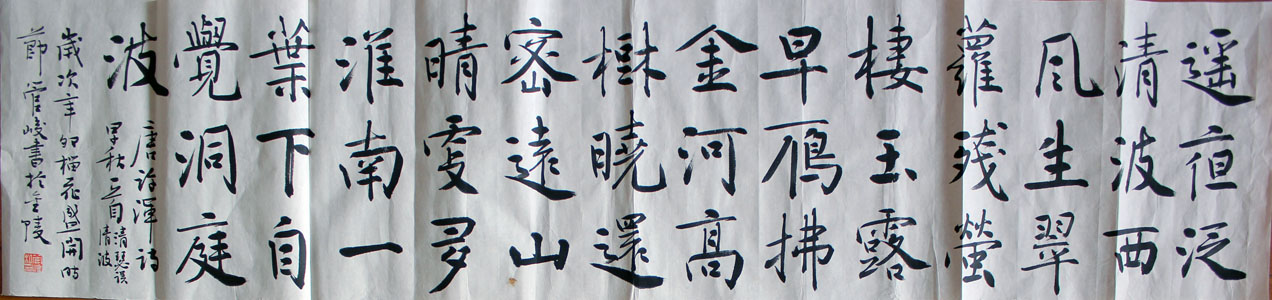 遥夜泛
清波西
風生翠
蘿殘螢
棲玉露
早鴈拂
金河高
樹曉還
密遠山
晴更多
淮南一
葉下自
覺洞庭
波
唐許渾詩
早秋三首
清瑟誤
清波
歲次辛卯榴花盛開時
節管峻書於金陵